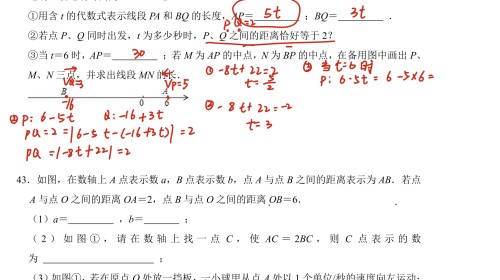 ①用含 t 的代数式表示线段 PA 和 BQ 的长度，AP= 5t ；BQ= 3t .
P Q=2
②若点 P、Q 同时出发，t 为多少秒时，P、Q 之间的距离恰好等于 2？
③当 t=6 时，AP= 30 ；若 M 为 AP 的中点，N 为 BP 的中点，在备用图中画出 P、
M、N 三点，并求出线段 MN 的长.
① -8t+22=2
t=5/2
② -8t+22=-2
t=3
③ 当t=6时
P: 6-5t = 6-5×6=
VQ=3
VP=5
B A
-16 0 6
② P: 6-5t Q: -16+3t
PQ=|6-5t-(-16+3t)|=2
PQ=|-8t+22|=2
43．如图，在数轴上 A 点表示数 a，B 点表示数 b，点 A 与点 B 之间的距离表示为 AB．若点
A 与点 O 之间的距离 OA=2，点 B 与点 O 之间的距离 OB=6.
（1）a= ，b= ；
（2）如图①，请在数轴上找一点 C，使 AC=2BC，则 C 点表示的数
为 ；
（3）如图①，若在原点 O 处放一挡板，一小球甲从点 A 处以 1 个单位/秒的速度向左运动；